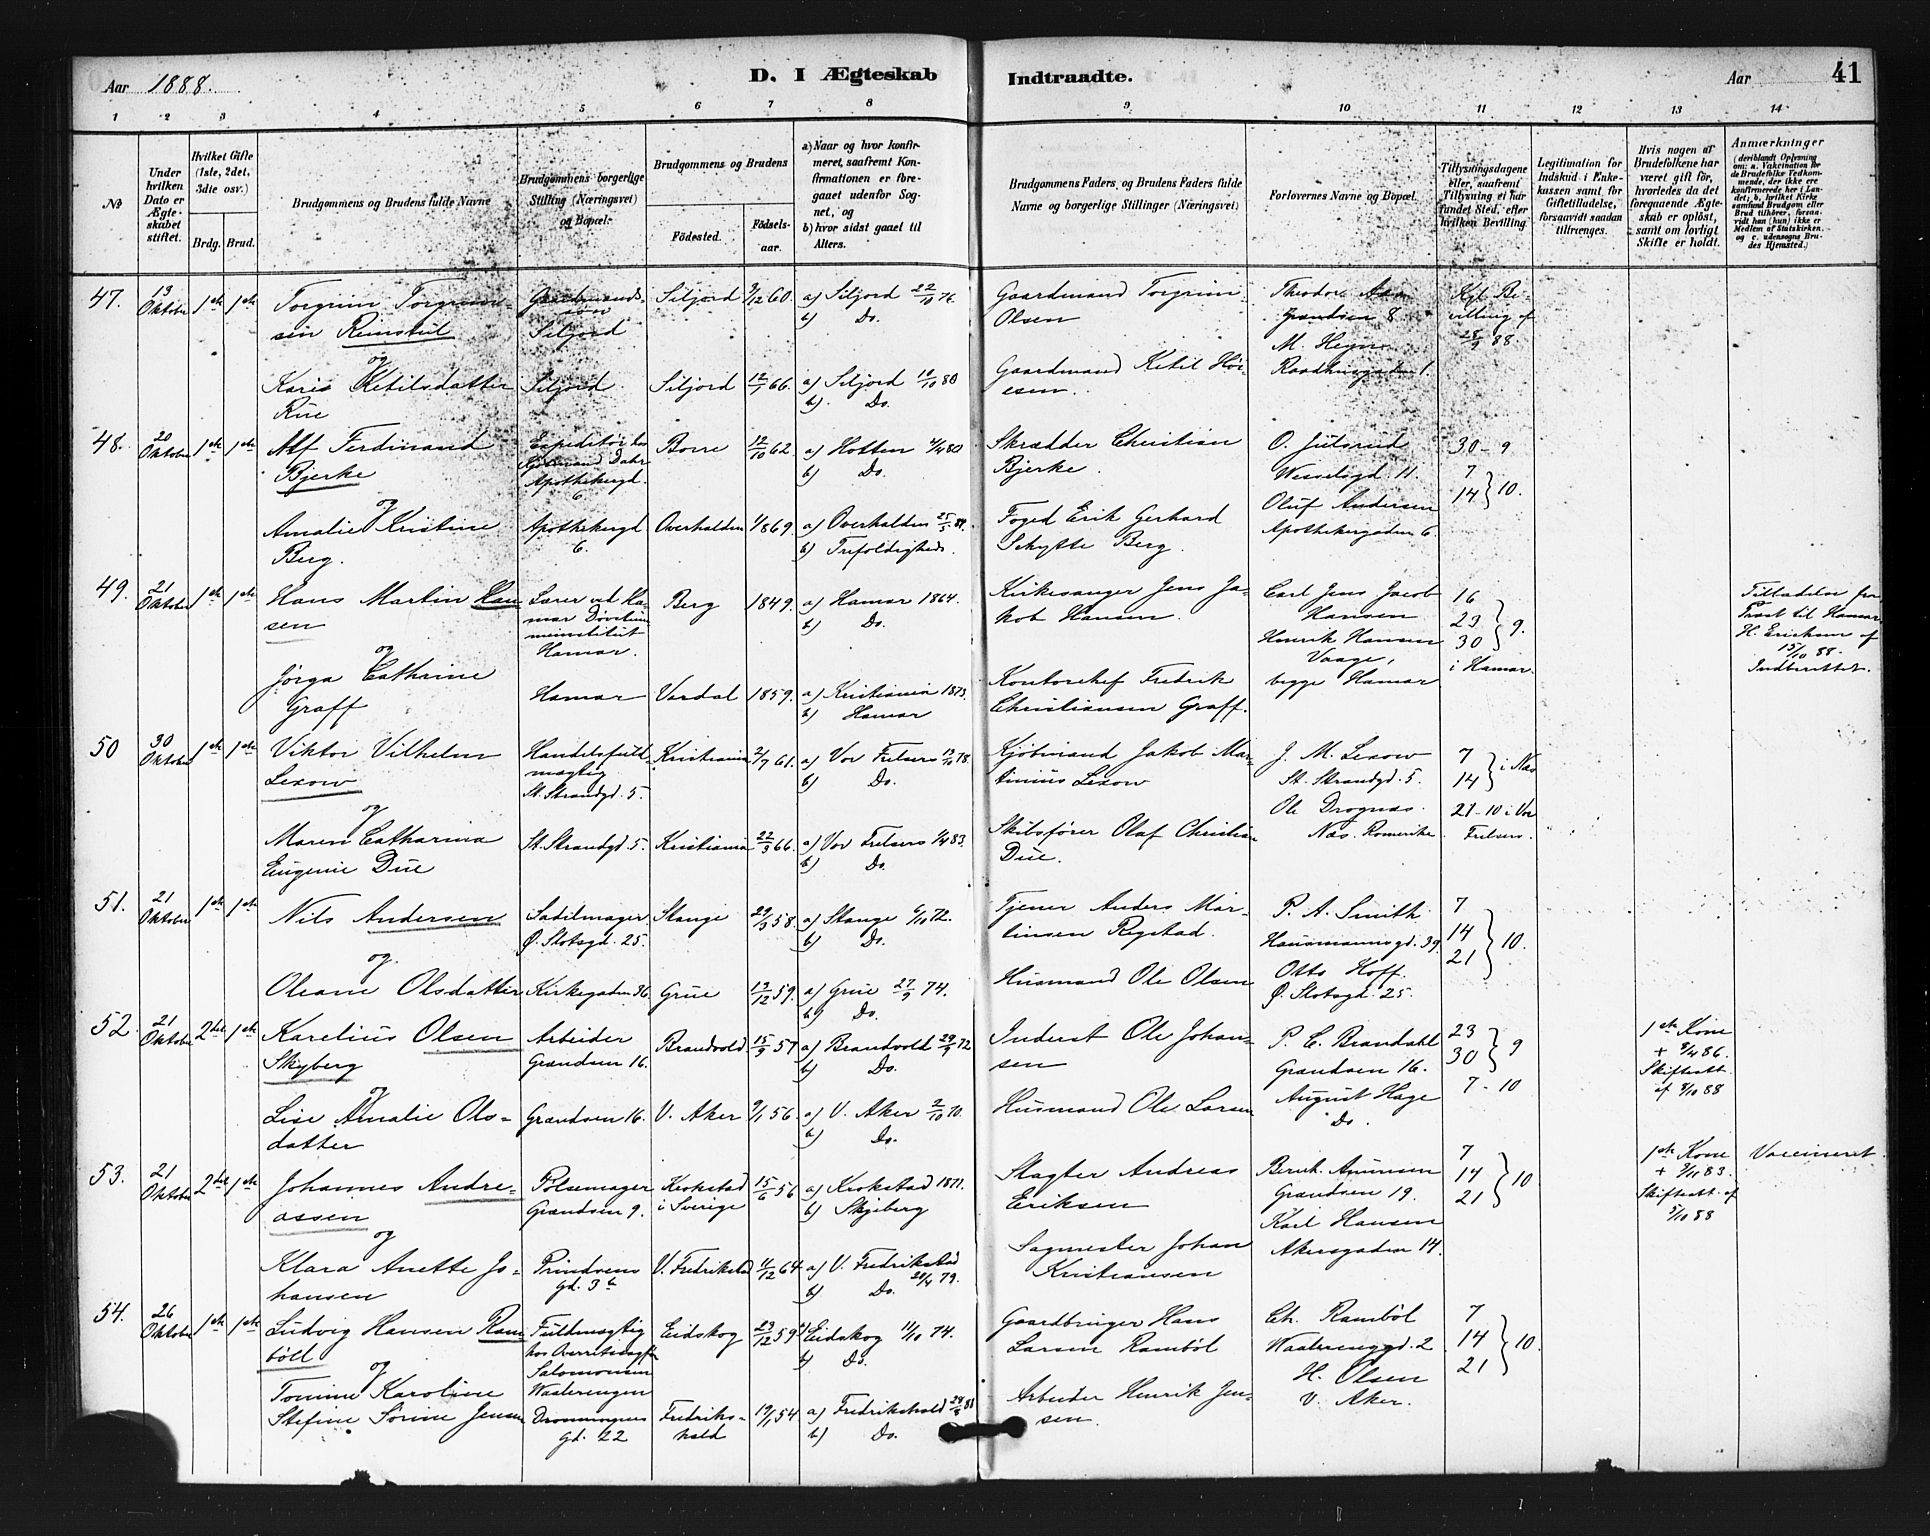 Aar 1888.
D. I Ægteskab
Indtraadte.
Aar
41
1 2 3 4 5 6 7 8 9 10 11 12 13 14
No
Under hvilken Dato er Ægteskabet stiftet.
Hvilket Gifte (1ste, 2det, 3die osv.)
Brdg. Brud.
Brudgommens og Brudens fulde Navne
Brudgommens borgerlige Stilling (Næringsvei) og Bopæl.
Brudgommens og Brudens
Födested.
Födselsaar.
a) Naar og hvor konfirmeret, saafremt Konfirmationen er foregaaet udenfor Sognet, og
b) hvor sidst gaaet til Alters.
Brudgommens Faders, og Brudens Faders fulde Navne og borgerlige Stillinger (Næringsvei)
Forlovernes Navne og Bopæl.
Tillysningsdagene eller, saafremt Tillysning ei har fundet Sted, efter hvilken Bevilling
Legitimation for Indskud i Enkekassen samt for Giftetilladelse, forsaavidt saadan tiltrænges.
Hvis nogen af Brudefolkene har været gift før, hvorledes da det foregaaende Ægteskab er oplöst, samt om lovligt Skifte er holdt.
Anmærkninger
(deriblandt Oplysning om: a. Vakcination for de Brudefolks Vedkommende, der ikke ere konfirmerede her i Landet; b. hvilket Kirkesamfund Brudgom eller Brud tilhörer, forsaavidt han (hun) ikke er Medlem af Statskirken. og c. udensogns Brudes Hjemsted.)
47. 13 Oktober 1ste 1ste
Torgrim Torgrimsen
Siljord
Siljord 60. a) Siljord 22/10 76
b) Do.
Gaardmand Torgrim
Olsen
Theodor
Grændsen 8
Kgl. Bevilling af
28/9 88.
og
Karis Ketilsdatter
Rue
Siljord
Siljord 12/7 66.
a) Siljord 10/10 80
b) Do.
Gaardmand Ketil
Raadhusgaden 1.
48. 20 Oktober 1ste 1ste
Alf Ferdinand
Bjerke
Expeditør hos
Apothekergd.
6.
Borre 12/10 62.
b) Do.
Skrædder Christian
Bjerke.
O. Jutsrud
Wesselsgd. 11.
30 - 9
7
14 } 10.
og
Amalie Kristine
Berg.
Apothekergd
6.
Overhalden 1/8 69.
a) Overhalden
b) Trefoldigheds.
Foged Erik Gerhard
Schytte Berg.
Oluf Andersen
Apothekergaden 6.
49. 21 Oktober 1ste 1ste
Hans Martin Hansen
Lærer ved Hamar
Døvstummeinstitut
Hamar.
Berg 1849.
a) Hamar 1864.
b) Do.
Kirkesanger Jens Jakob Hansen.
Carl Jens Jacob
Hansen
Henrik Hansen
Vaage,
begge Hamar
16
23
30 } 9.
i Hamar
Tilladelse fra
Provst til Hamar
H. Erichsen af
15/10 88.
Indberettet.
og
Jørga Cathrine
Graff
Hamar Verdal 1859.
a) Kristiania 1873.
b) Hamar
Kontorchef Fredrik
Christiansen Graff.
50 30 Oktober 1ste 1ste
Viktor Vilhelm
Lexow
Handelsfuldmægtig
St. Strandgd. 5.
Kristiania 2/7 61.
a) Vor Frelsers 13/10 78.
b) Do.
Kjøbmand Jakob Martinius Lexow
J. M. Lexow
St. Strandgd. 5.
Ole Drognæs.
Næs. Romerike.
7
14 } i Næs
21 - 10 i Vor
Frelsers.
og
Maren Catharina
Eugenie Due
St. Strandgd 5.
Kristiania 22/3 66.
a) Vor Frelsers 1/4 83.
b) Do.
Skibsfører Olaf Christian
Due.
51. 21 Oktober 1ste 1ste
Nils Andersen
Sadelmager
Ø. Slotsgd. 25.
Stange 29/3 58.
a) Stange 6/10 72.
b) Do.
Tjener Anders Martinsen Rigstad.
P. A. Smith
Hausmannsgd. 39
Otto Hoff.
Ø. Slotsgd. 25.
7
14
21 } 10.
og
Oleane Olsdatter
Kirkegaden 36.
Grue 13/12 59.
a) Grue 27/9 74.
b) Do.
Husmand Ole Olsen
52. 21 Oktober 2det 1ste
Karelius Olsen
Skyberg
Arbeider
Grændsen 16.
Brandvold 15/9 57
a) Brandvold 29/9 72
b) Do.
Inderst Ole Johansen
P. C. Brandahl
Grændsen 16.
August Hage
Do.
23
30 } 9
7 - 10
1ste Kone
+ 8/4 86.
Skifteatt.
af 9/10 88
og
Lise Amalie Olsdatter
Grændsen 16.
V. Aker 9/1 56.
a) V. Aker 2/10 70.
b) Do.
Husmand Ole Larsen
53. 21 Oktober 2det 1ste
Johannes Andreassen
Pølsemager
Grændsen 9.
Krokstad
i Sverige
15/6 56
a) Krokstad 1871.
b) Skjeberg
Slagter Andreas
Eriksen
Bernh. Amunsen
Grændsen 19.
Karl Hansen
Akersgaden 14.
7
14
21 } 10
1ste Kone
+ 3/11 83.
Skifteatt. af
5/10 88
Vaccineret.
og
Klara Anette Johansen
Prindsens
gd. 3b
V. Fredrikstad 11/12 64
a) V. Fredrikstad
20/4 79.
b) Do.
Sagmester Johan
Kristiansen
54. 26 Oktober 1ste 1ste
Ludvig Hansen Ramböll
Fuldmægtig
hos Overretssagfør
Salomonsen
Waalerengen
Eidskog 23/12 59
a) Eidskog 11/10 74.
b) Do.
Gaardbruger Hans
Larsen Ramböl
Ch. Ramböl
Waalerenggd. 2
H. Olsen
V. Aker.
7
14
21 } 10.
og
Tomine Karoline
Stefine Sørine Jensen
Dronningens
gd. 22
Fredrikshald
19/1 54
a) Fredrikshald
b) Do.
Arbeider Henrik Jensen.